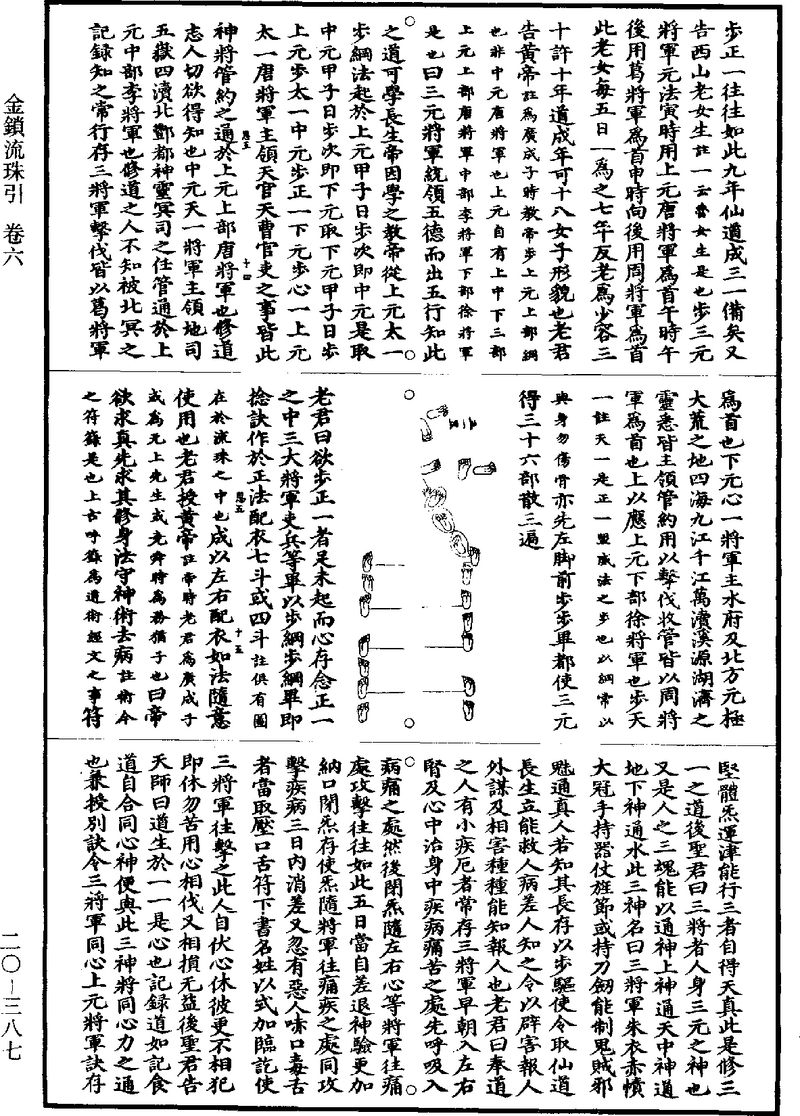 金鎖流珠引　卷六
二〇—三八七
步正一往往如此九年仙道成三一備矣又
告西山老女生註一云魯女生是也步三元
將軍元法寅時用上元唐將軍為首午時午
後用葛將軍為首申時向後用周將軍為首
此老女每五日一為之七年反老為少容三
十許十年道成年可十八女子形貌也老君
告黃帝註為廣成子時教帝步上元上部綱
也非中元唐將軍也上元自有上中下三部
上元上部唐將軍中部李將軍下部徐將軍
是也曰三元將軍統領五德而出五行知此
之道可學長生帝因學之教帝從上元太一
步綱法起於上元甲子日步次即中元是取
中元甲子日步次即下元取下元甲子日步
上元步太一中元步正一下元步心一上元
太一唐將軍主領天官天曹官吏之事皆此
神將管約之通於上元上部唐將軍也修道
志人切欲得知也中元天一將軍主領地司
五嶽四瀆北酆都神靈冥司之任管通於上
元中部李將軍也修道之人不知被北冥之
記錄知之常行存三將軍擊伐皆以葛將軍
為首也下元心一將軍主水府及北方元極
大荒之地四海九江千江萬瀆溪源湖濟之
靈悉皆主領管約用以擊伐收管皆以周將
軍為首也上以應上元下部徐將軍也步天
一註天一是正一盟威法之步也以綱常以
與身勿傷骨亦先左脚前步步畢都使三元
得三十六部散三遍
老君曰欲步正一者足未起而心存念正一
之中三大將軍吏兵等軍以步綱步綱畢即
捻訣作於正法配衣七斗或四斗註俱有圖
在於流珠之中也成以左右配衣如法隨意
使用也老君授黃帝註帝時老君為廣成子
或為元上先生或堯舜時為務猶子也曰帝
欲求真先求其修身法守神術去病註術令
之符籙是也上古呼籙為道術經文之事符
堅體炁運津能行三者自得天真此是修三
一之道後聖君曰三將者人身三元之神也
又是人之三魂能以通神上神通天中神通
地下神通水此三神名曰三將軍朱衣赤幘
大冠手持器仗旌節或持刀劒能制鬼賊邪
魅通真人若知其長存以步驅使令取仙道
長生立能救人病差人知之令以辟害報人
外謀及相害種種能知報人也老君曰奉道
之人有小疾厄者常存三將軍早朝入左右
腎及心中治身中疾病痛苦之處先呼吸入
病痛之處然後閉炁隨左右心等將軍往痛
處攻擊往往如此五日當自差退神驗更加
納口閉炁存使炁隨將軍往痛疾之處同攻
擊疾病三日內消差又忽有惡人啼口毒舌
者當取壓口舌符下書名姓以式加臨訖使
三將軍往擊之此人自伏心休彼更不相犯
即休勿苦用心相伐又相損无益後聖君告
天師曰道生於一一是心也記錄道如記食
道自合同心神便與此三神將同心力之通
也兼授別訣令三將軍同心上元將軍訣存